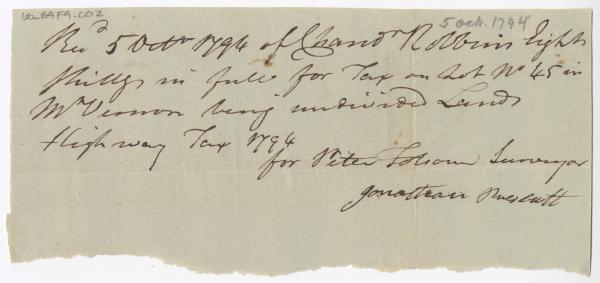 6w.BAFA.002
5 Oct. 1794
Recd 5 Octr 1794 of Chandr Robbins Eight
Shillgs in full for Tax on Lot No 45 in
Mt Vernon being undivided Lands
Highway Tax 1794
for Peter Folsom Surveyor
Jonathan Prescutt